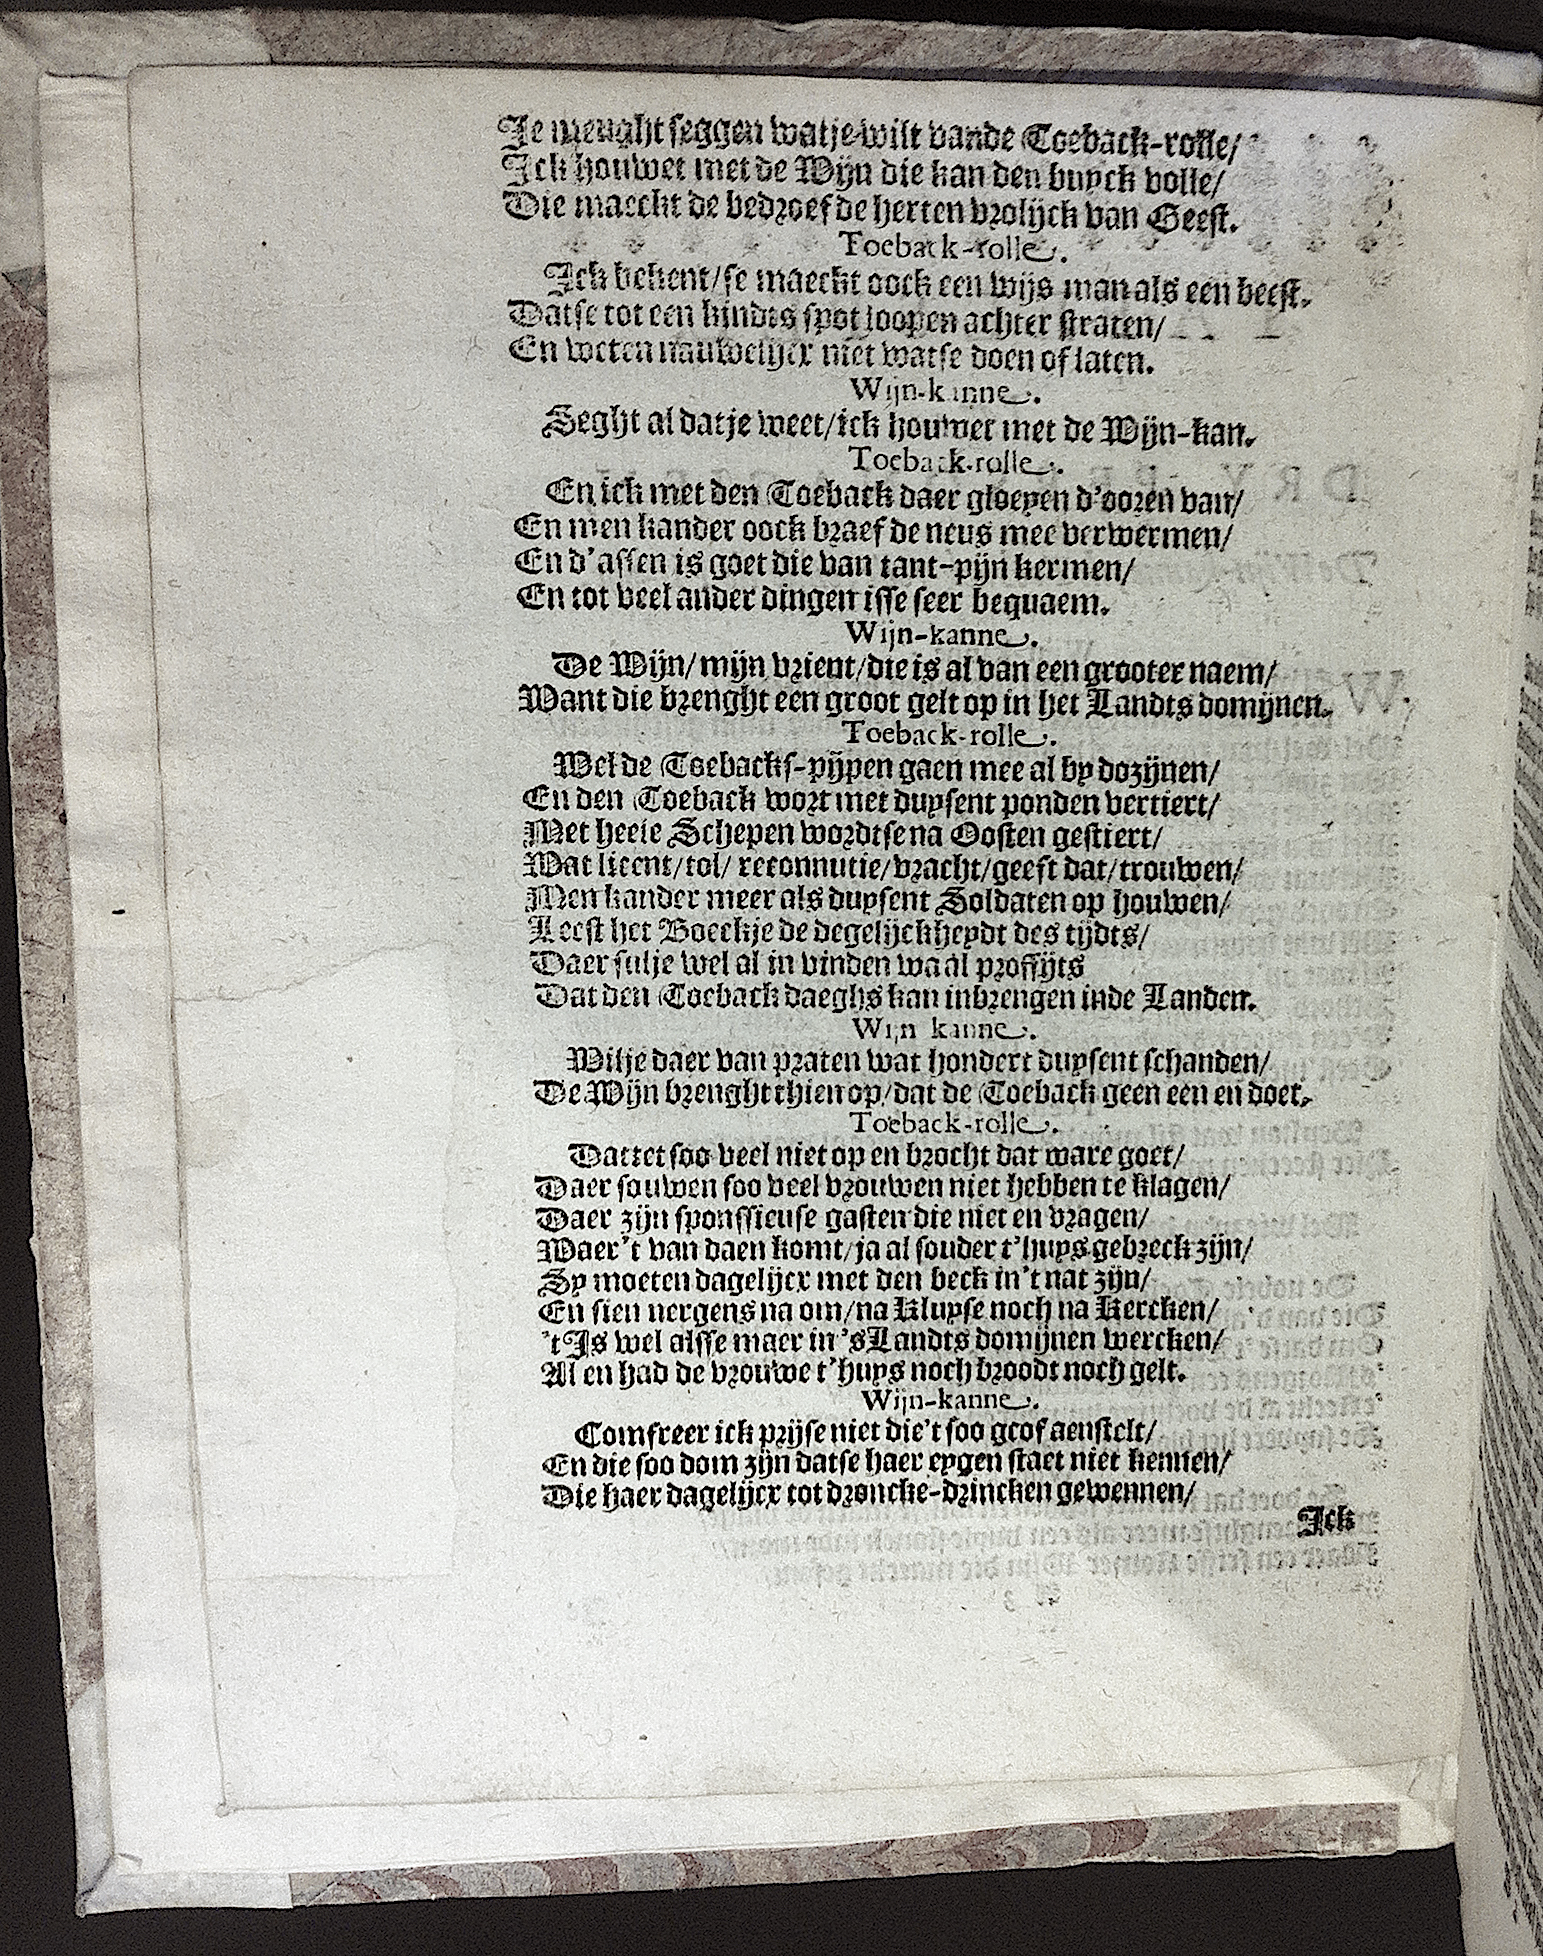 Je meught seggen watje wilt vande Toeback-rolle/
Ick houwet met de Wijn die kan den buyck volle/
Die maeckt de bedroefde herten vrolijck van Geest.
Toeback-rolle.
Ick bekent/se maeckt oock een wijs man als een beest.
Datse tot een kindts spot loopen achter straten/
En weten nauwelijcx niet watse doen of laten.
Wijn-kanne.
Seght al datje weet/ick houwet met de Wijn-kan.
Toeback-rolle.
En ick met den Toeback daer gloeyen d'ooren van/
En men kander oock braef de neus mee verwermen/
En d'assen is goet die van tant-pijn kermen/
En tot veel ander dingen isse seer bequaem.
Wijn-kanne.
De Wijn/mijn vrient/die is al van een grooter naem/
Want die brenght een groot gelt op in het Landts domijnen.
Toeback-rolle.
Wel de Toebacks-pijpen gaen mee al by dozijnen/
En den Toeback wort met duysent ponden vertiert/
Met heele Schepen wordtse na Oosten gestiert/
Wat licent/tol/ retonnutie/vracht/geeft dat/trouwen/
Men kander meer als duysent Soldaten op houwen/
Leest het Boeckje de degelijckheydt des tijdts/
Daer sulje wel al in vinden wa al proffijts
Dat den Toeback daeghs kan inbrengen inde Landen.
Wijn kanne.
Wilje daer van praten wat hondert duysent schanden/
De Wijn brenght thien op/dat de Toeback geen een en doet.
Toeback-rolle.
Dattet soo veel niet op en brocht dat ware goet/
Daer souwen soo veel vrouwen niet hebben te klagen/
Daer zijn sponssieuse gasten die niet en vragen/
Waer't van daen komt/ja al souder t'huys gebreck zijn/
Sy moeten dagelijcx met den beck in't nat zijn/
En sien nergens na om/na Kluyse noch na Kercken/
't Is wel alsse maer in 's Landts domijnen wercken/
Al en had de vrouwe t'huys noch broodt noch gelt.
Wijn-kanne.
Comfreer ick prijse niet die't soo grof aenstelt/
En die soo dom zijn datse haer eygen staet niet kennen/
Die haer dagelijcx tot droncke-drincken gewennen/
Ick